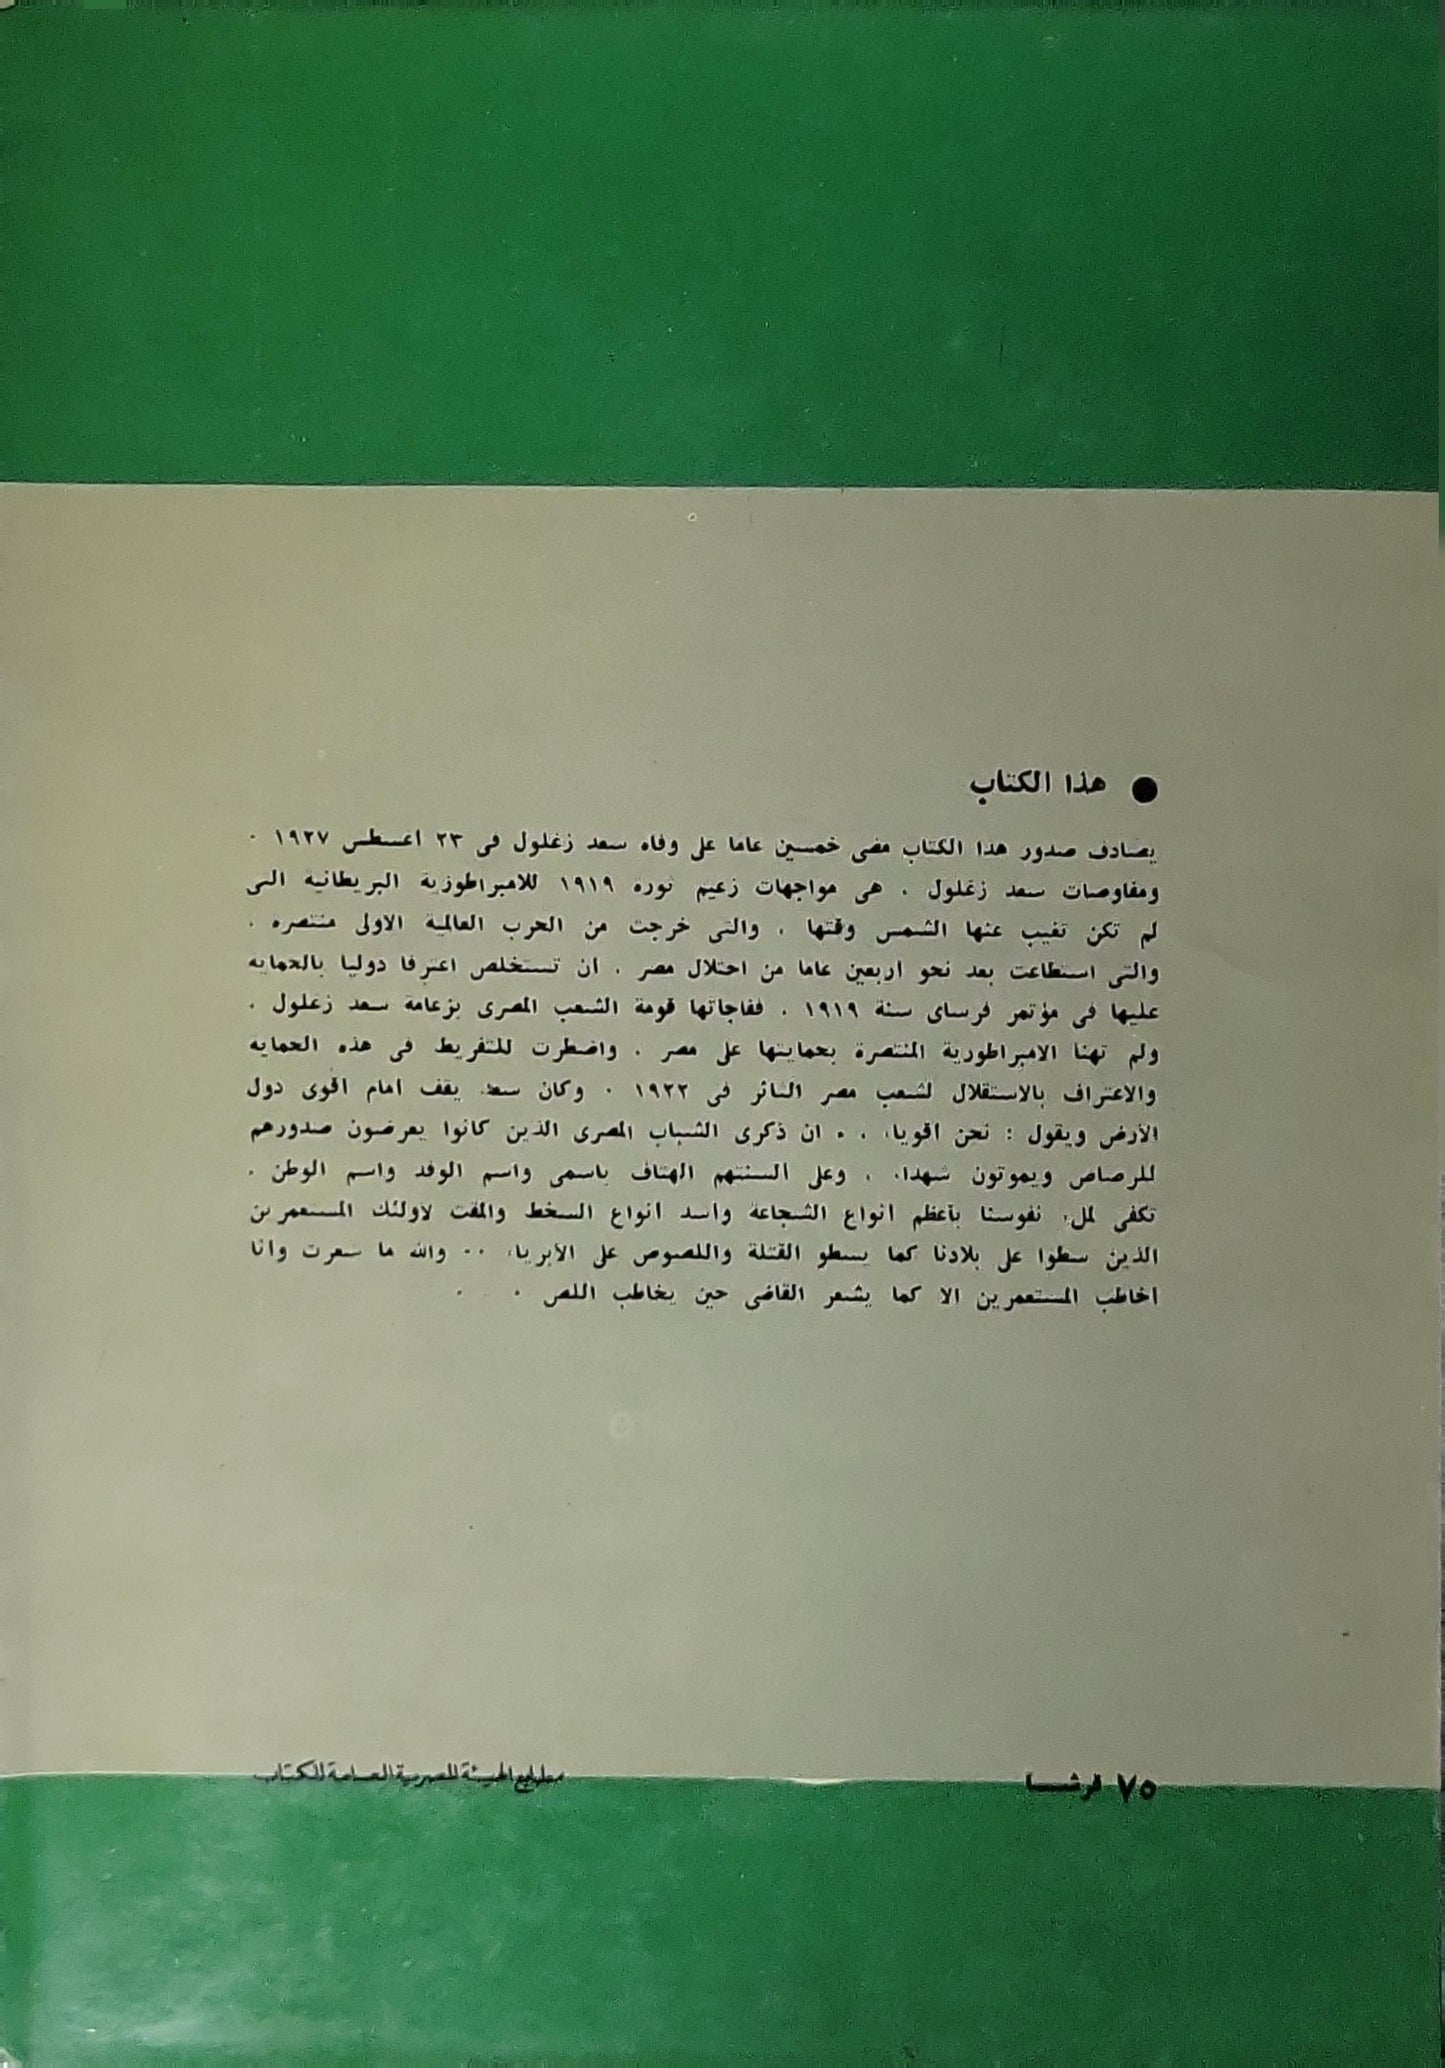 ● هذا الكتاب
يصادف صدور هذا الكتاب مضى خمسين عاما على وفاة سعد زغلول فى ٢٣ اغسطس ١٩٢٧ ٠
ومفاوضات سعد زغلول ٠ هى مواجهات زعيم ثورة ١٩١٩ للامبراطورية البريطانية التى
لم تكن تغيب عنها الشمس وقتها ٠ والتى خرجت من الحرب العالمية الاولى منتصرة ٠
والتى استطاعت بعد نحو اربعين عاما من احتلال مصر ٠ ان تستخلص اعترفا دوليا بالحماية
عليها فى مؤتمر فرساى سنة ١٩١٩ ٠ ففاجاتها قومة الشعب المصرى بزعامة سعد زغلول ٠
ولم تهنا الامبراطورية المنتصرة بحمايتها على مصر ٠ واضطرت للتفريط فى هذه الحماية
والاعتراف بالاستقلال لشعب مصر الثائر فى ١٩٢٢ ٠ وكان سعد يقف امام اقوى دول
الأرض ويقول : نحن أقوياء ٠ ٠ ان ذكرى الشباب المصرى الذين كانوا يعرضون صدورهم
للرصاص ويموتون شهداء ٠ وعلى ألسنتهم الهتاف باسمى واسم الوفد واسم الوطن ٠
تكفى لملء نفوسنا بأعظم أنواع الشجاعة وأشد أنواع السخط والمقت لأولئك المستعمرين
الذين سطوا على بلادنا كما يسطو القتلة واللصوص على الأبرياء ٠٠ والله ما شعرت وأنا
أخاطب المستعمرين الا كما يشعر القاضى حين يخاطب اللص ٠ ٠
٧٥ قرشا
مطابع الهيئة المصرية العامة للكتاب